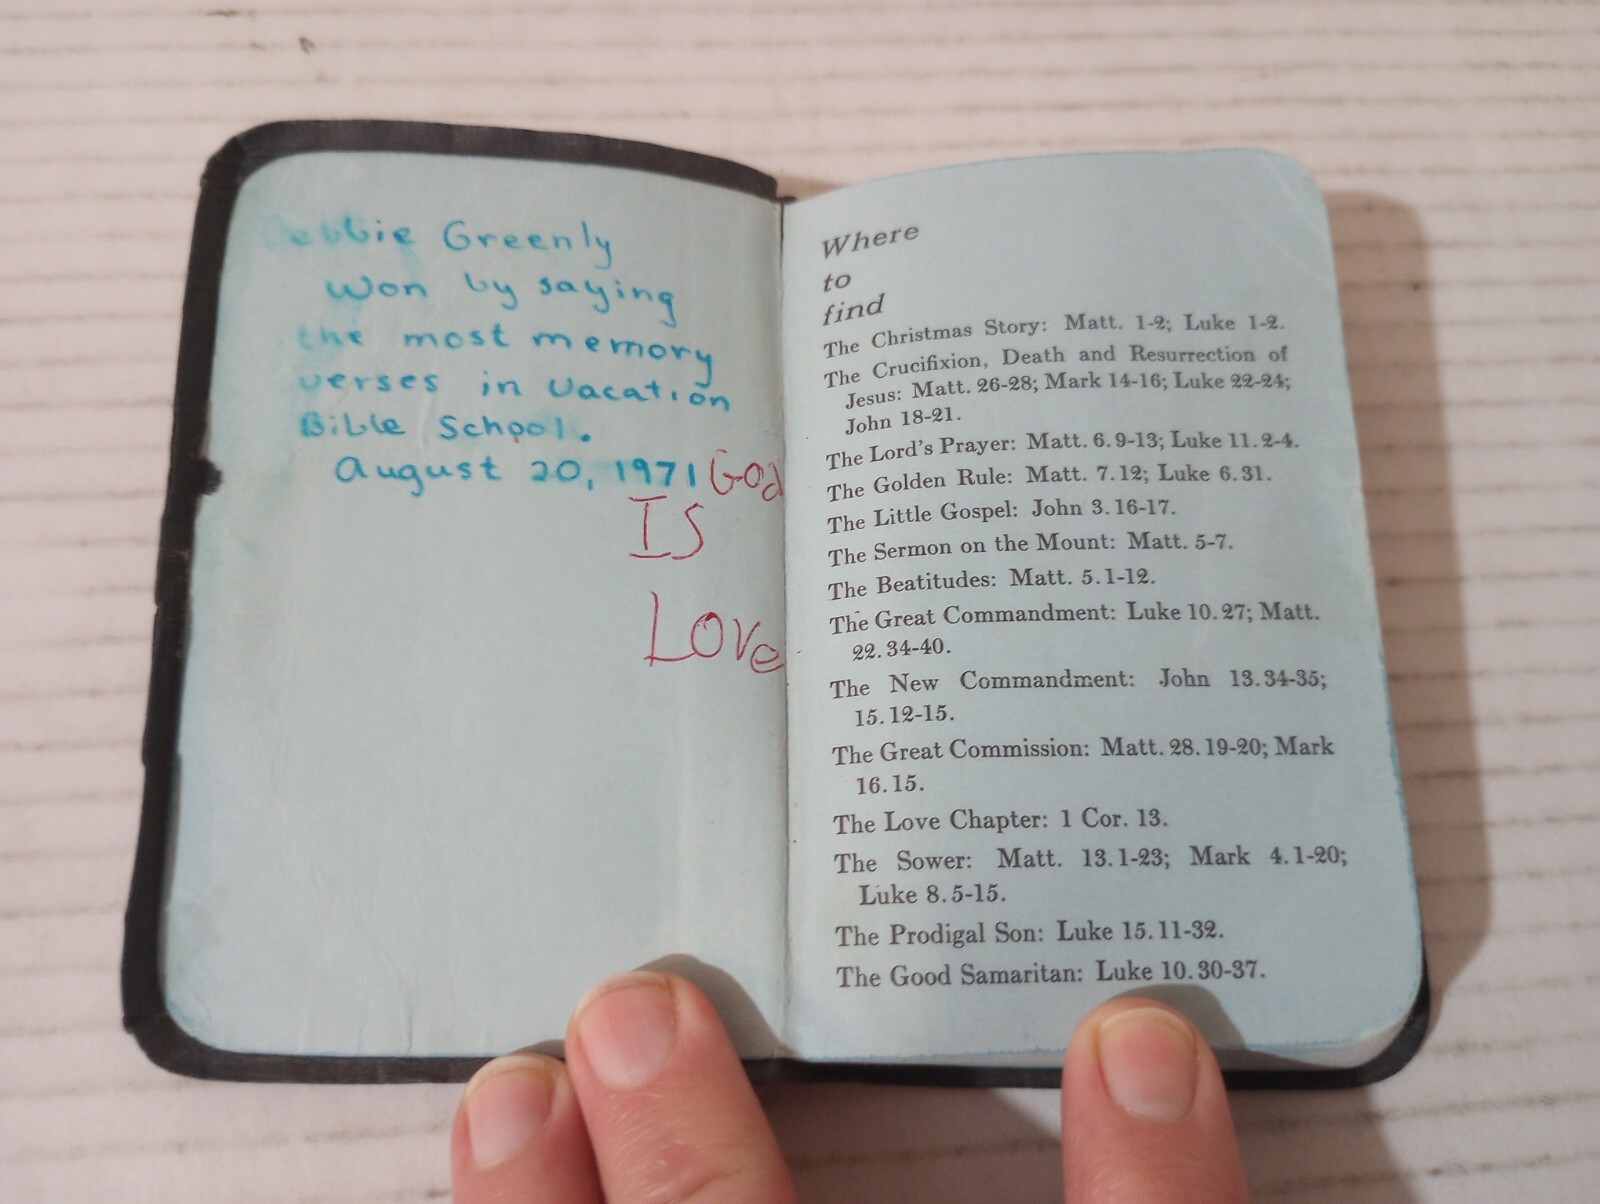 Debbie Greenly
won by saying
the most memory
verses in vacation
Bible School.
August 20, 1971
God
IS
LOVe
Where
to
find
The Christmas Story: Matt. 1-2; Luke 1-2.
The Crucifixion, Death and Resurrection of
Jesus: Matt. 26-28; Mark 14-16; Luke 22-24;
John 18-21.
The Lord's Prayer: Matt. 6.9-13; Luke 11.2-4.
The Golden Rule: Matt. 7.12; Luke 6.31.
The Little Gospel: John 3.16-17.
The Sermon on the Mount: Matt. 5-7.
The Beatitudes: Matt. 5.1-12.
The Great Commandment: Luke 10.27; Matt.
22.34-40.
The New Commandment: John 13.34-35;
15.12-15.
The Great Commission: Matt. 28.19-20; Mark
16.15.
The Love Chapter: 1 Cor. 13.
The Sower: Matt. 13.1-23; Mark 4.1-20;
Luke 8.5-15.
The Prodigal Son: Luke 15.11-32.
The Good Samaritan: Luke 10.30-37.